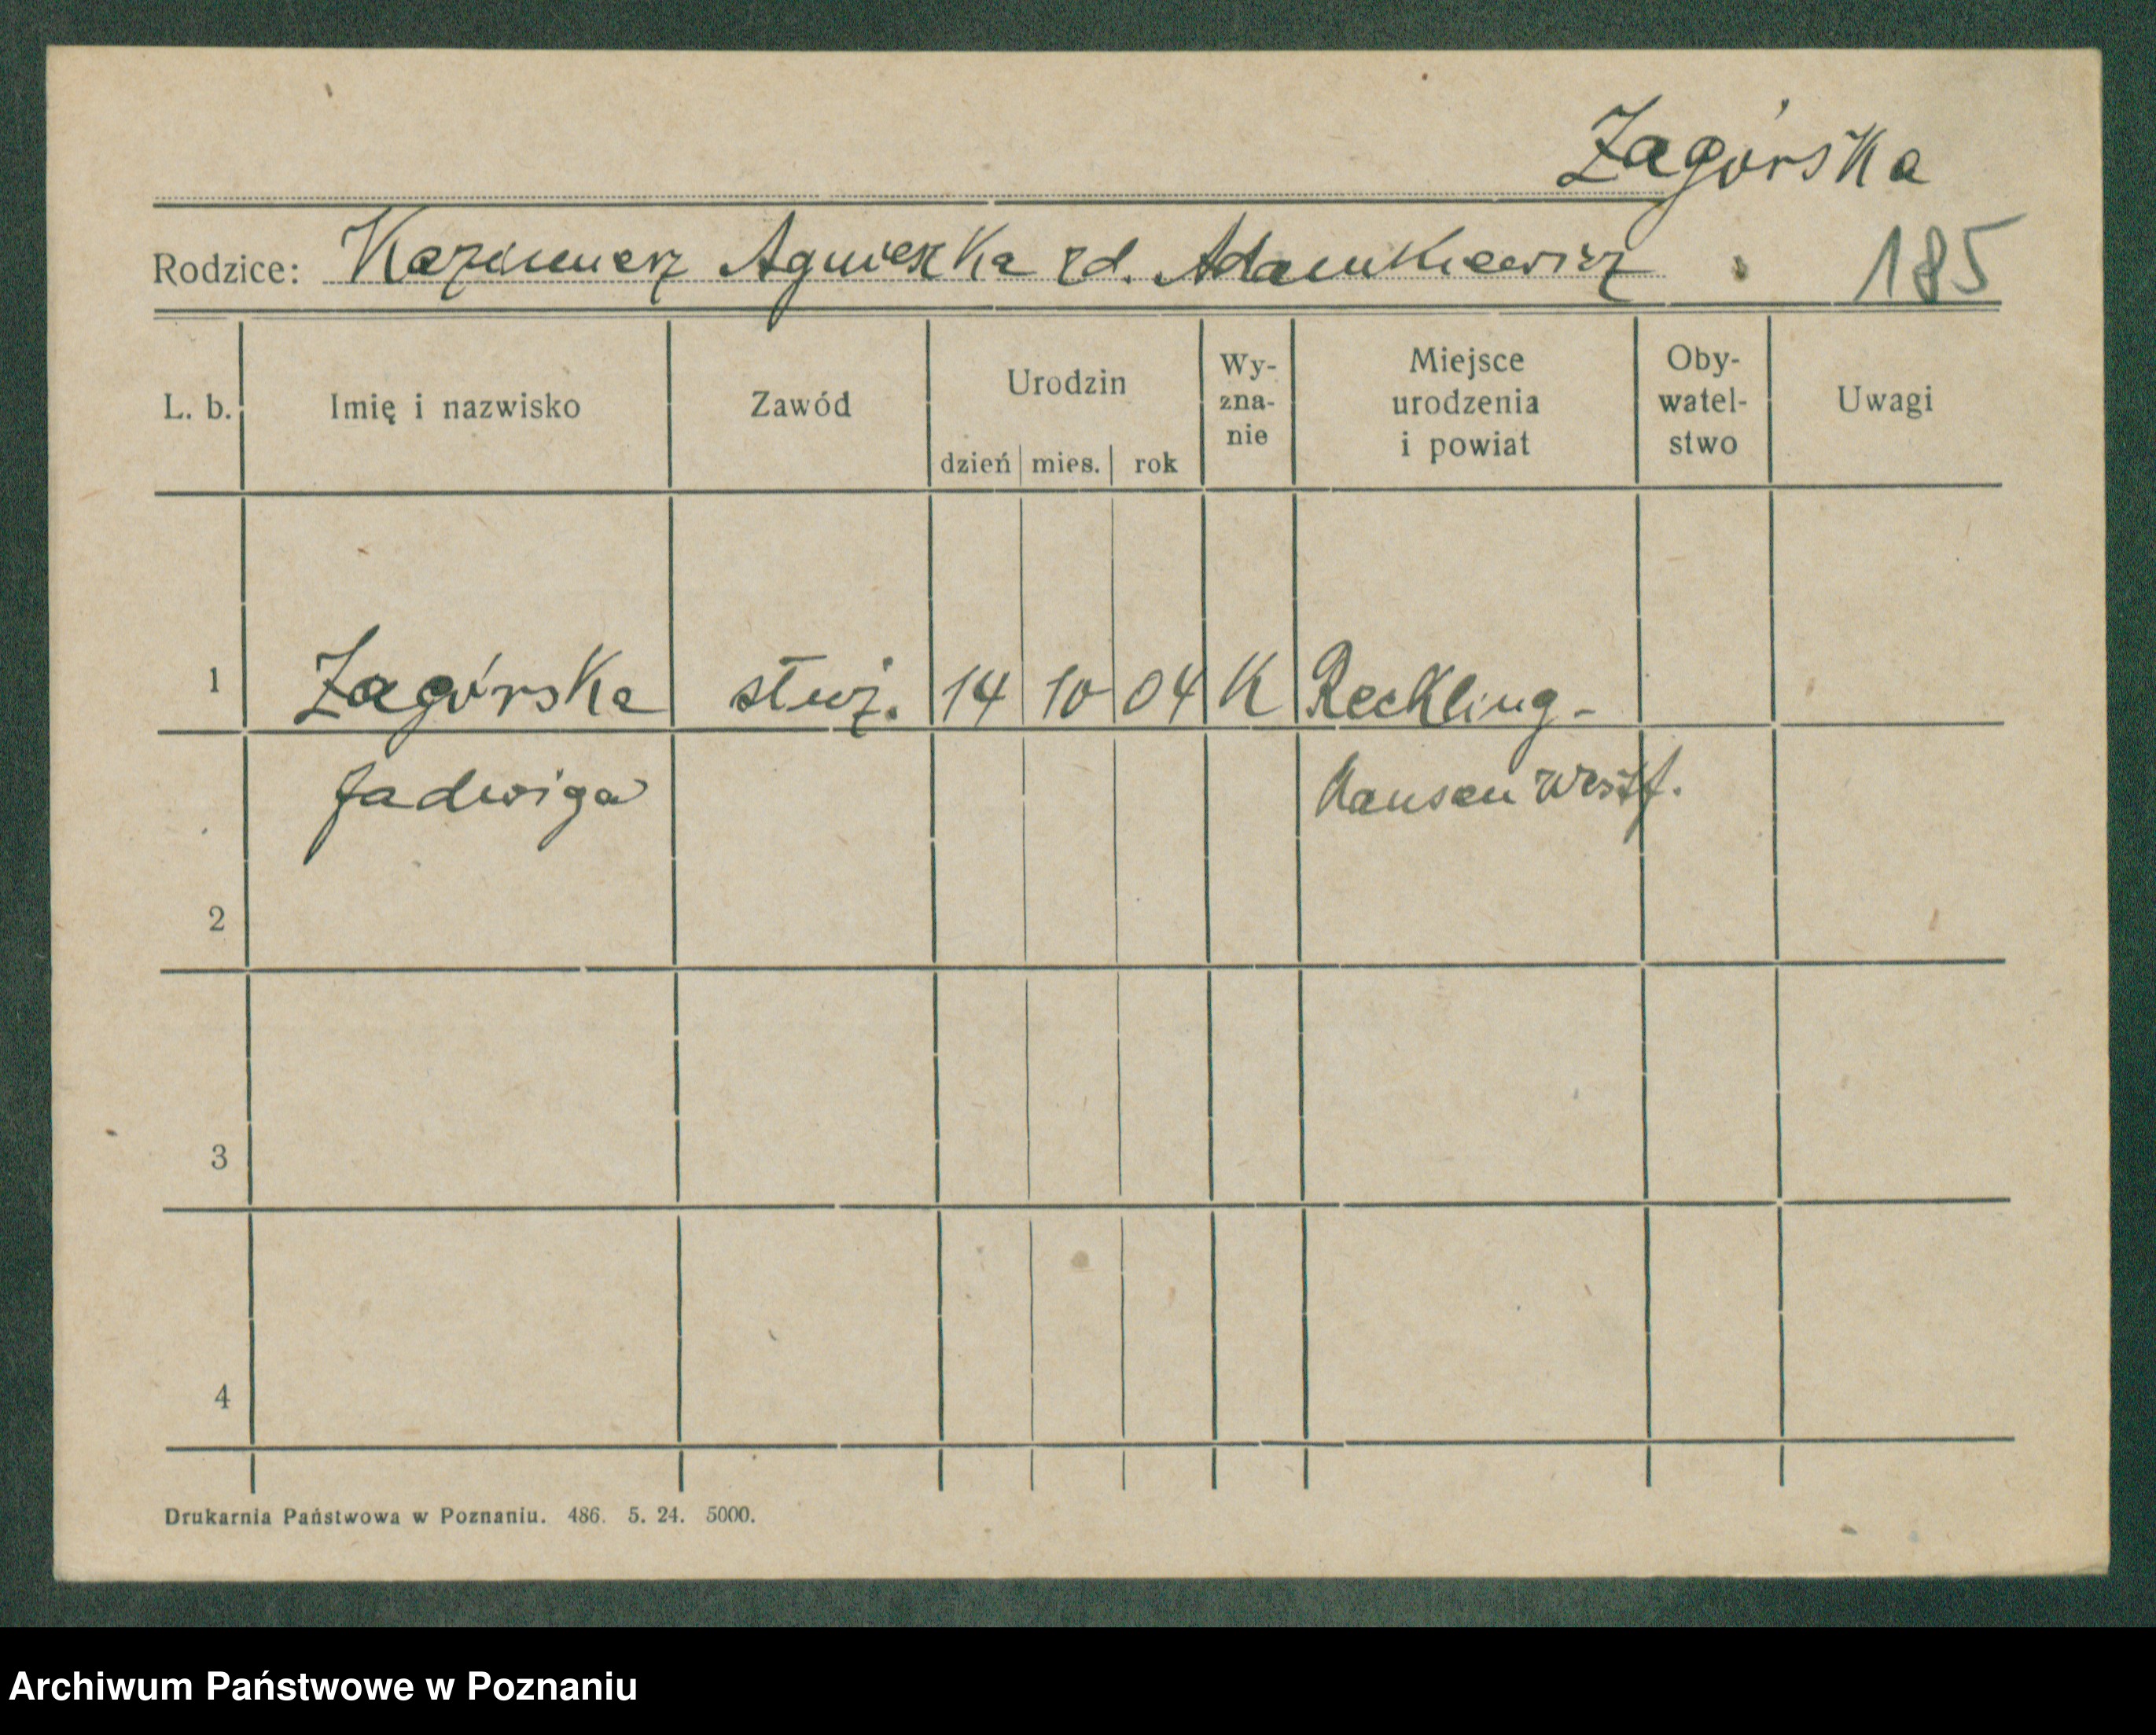 Zagórska
Rodzice: Kazimierz Agnieszka zd. Adamkiewicz 185
L. b. Imię i nazwisko Zawód Urodzin dzień mies. rok Wy-zna-nie Miejsce urodzenia i powiat Oby-watel-stwo Uwagi
1 Zagórska służ. 14 10 04 K Reckling-
Jadwiga hausen Westf.
2
3
4
Drukarnia Państwowa w Poznaniu. 486. 5. 24. 5000.
Archiwum Państwowe w Poznaniu